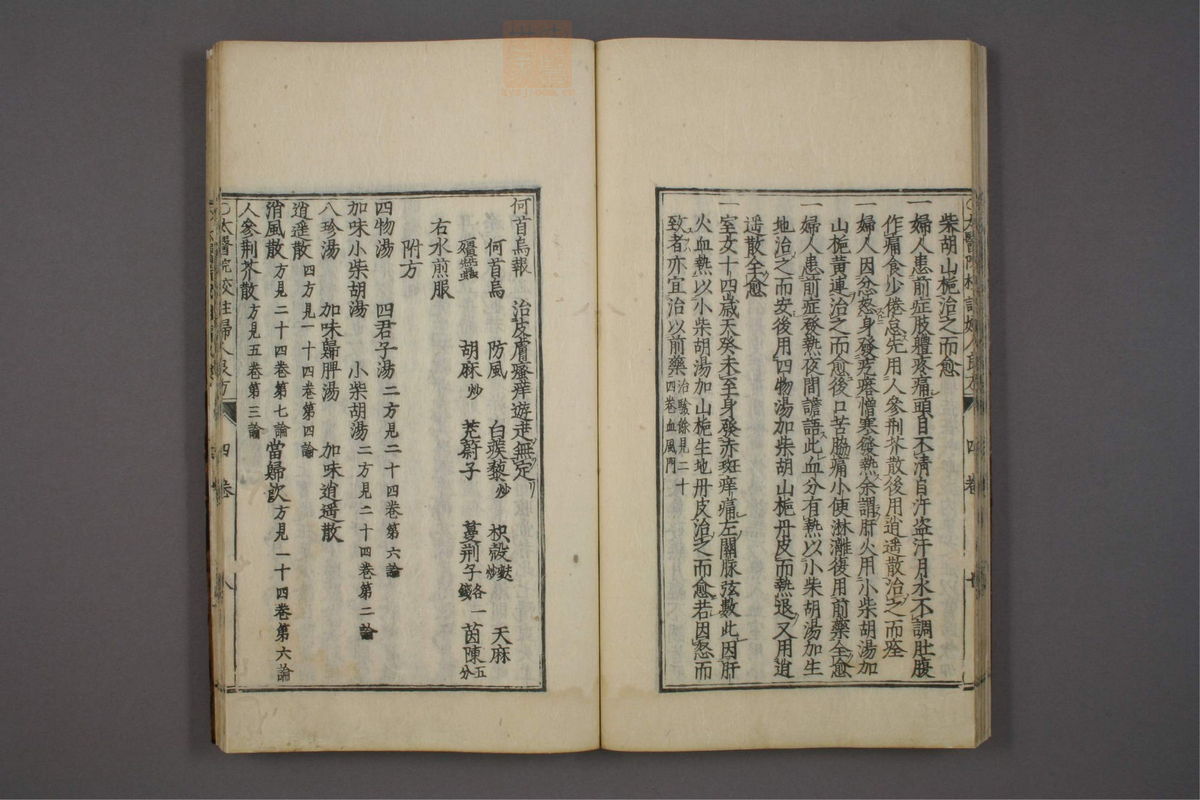 柴胡山梔治之而愈
一婦人患前症肢體疼痛頭目不清自汗盗汗月水不調肚腹
作痛食少倦怠先用人參荆芥散後用逍遥散治之而痊
一婦人因忿怒身發疙瘩憎寒發熱余謂肝火用小柴胡湯加
山梔黄連治之而愈後口苦脇痛小便淋漓復用前藥全愈
一婦人患前症發熱夜間譫語此血分有熱以小柴胡湯加生
地治之而安後用四物湯加柴胡山梔丹皮而熱退又用逍
遥散全愈
一室女十四歳天癸未至身發赤斑痒痛左關脉弦數此因肝
火血熱以小柴胡湯加山梔生地丹皮治之而愈若因怒而
致者亦宜治以前藥治驗餘見二十四卷血風門
何首烏報 治皮膚瘙痒遊走無定
何首烏 防風 白蒺藜炒 枳殻麩炒 天麻
殭蠶 胡麻炒 茺蔚子 蔓荆子各一錢 茵陳五分
右水煎服
附方
四物湯 四君子湯二方見二十四卷第六論
加味小柴胡湯 小柴胡湯二方見二十四卷第二論
八珍湯 加味歸脾湯 加味逍遥散
逍遥散四方見一十四卷第四論
消風散方見二十四卷第七論 當歸飲方見一十四卷第六論
人參荆芥散方見五卷第三論
○太醫院校註婦人良方 四卷 八